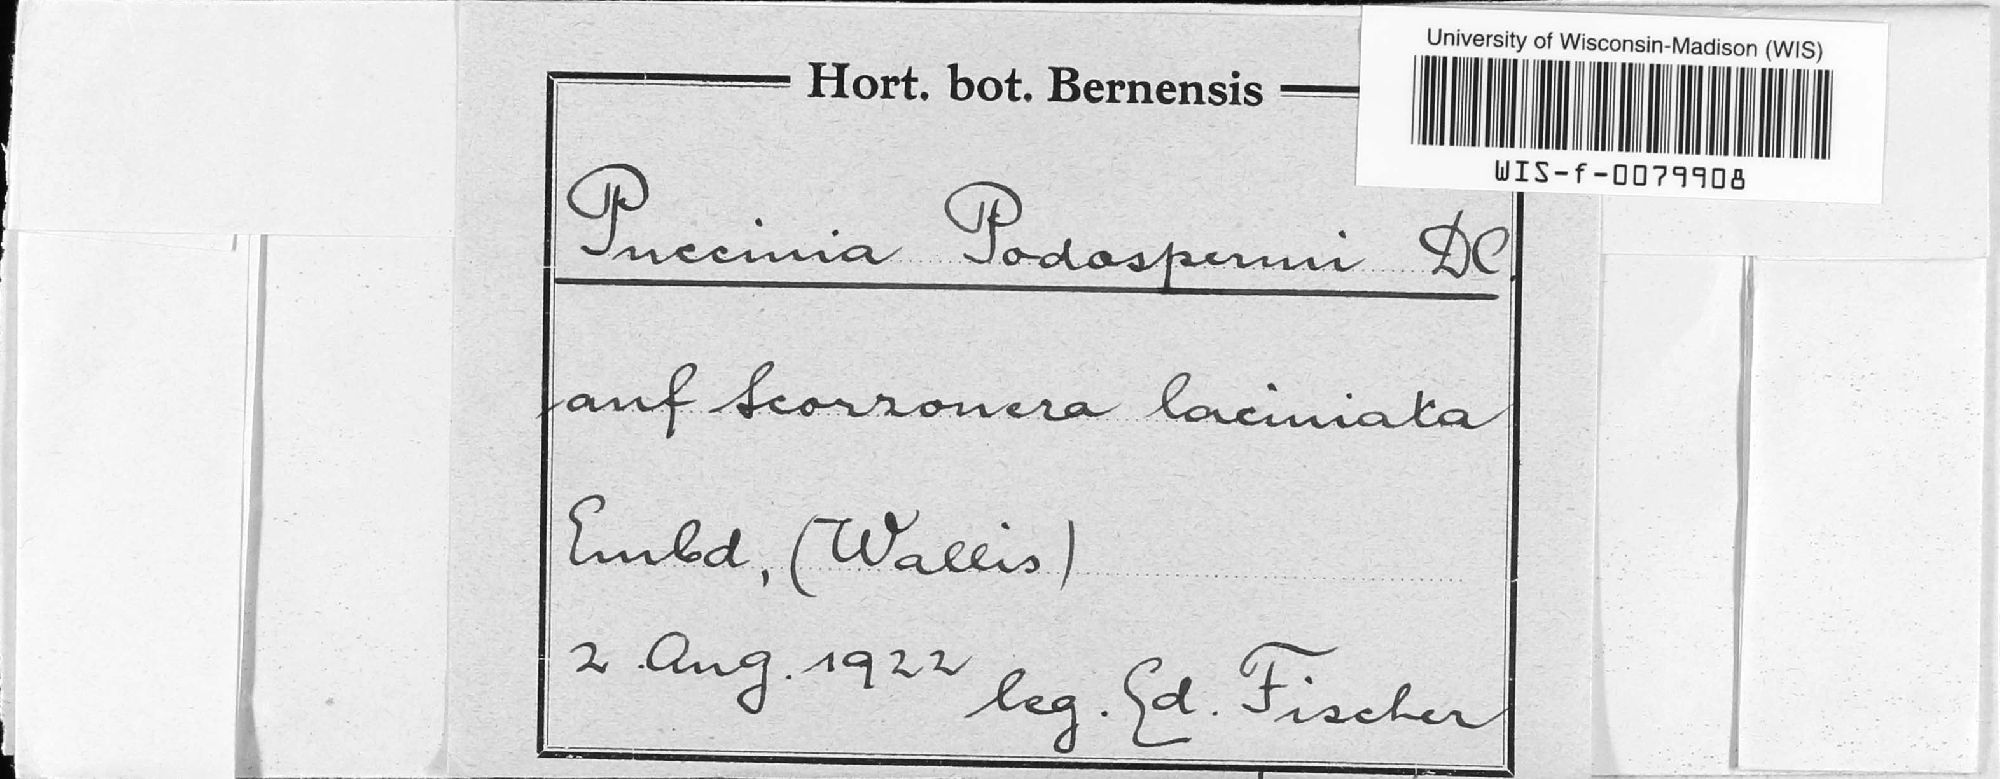 University of Wisconsin-Madison (WIS)
WIS-f-0079908
Hort. bot. Bernensis
Puccinia Podospermi DC
auf Scorzonera laciniata
Embd, (Wallis)
2 Aug. 1922 leg. Ed. Fischer